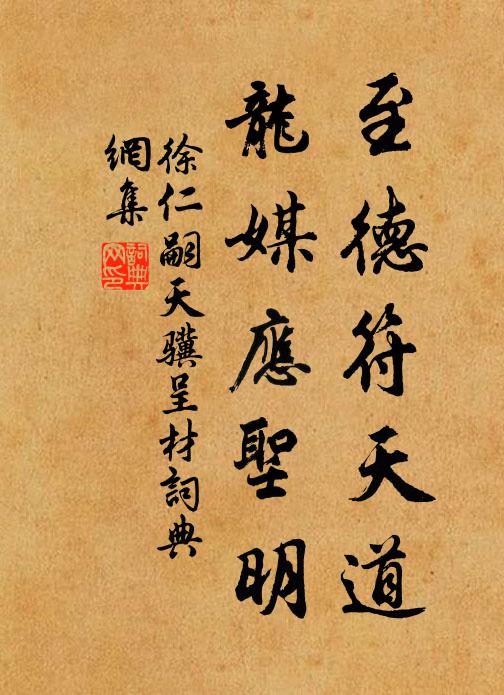 至德符天道
龍媒應聖明
徐仁嗣天驥呈材詞典
網集
詞典
網印